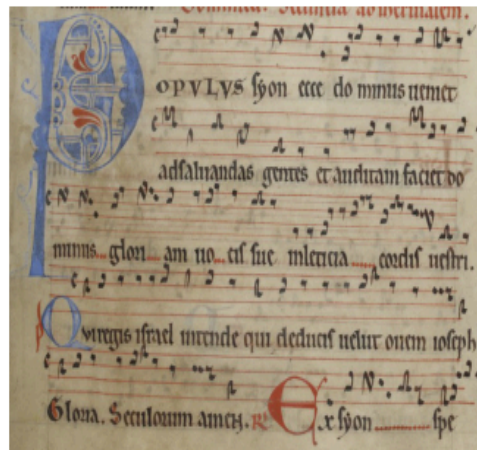 Statio ad iherusalem.
POPVLVS syon ecce do minus ueniet
adsaluandas gentes et auditam faciet do
minus glori am uo cis sue inleticia cordis uestri.
Qui regis israel intende qui deducis uelut ouem ioseph
Gloria. Seculorum amen. R Ex syon spe